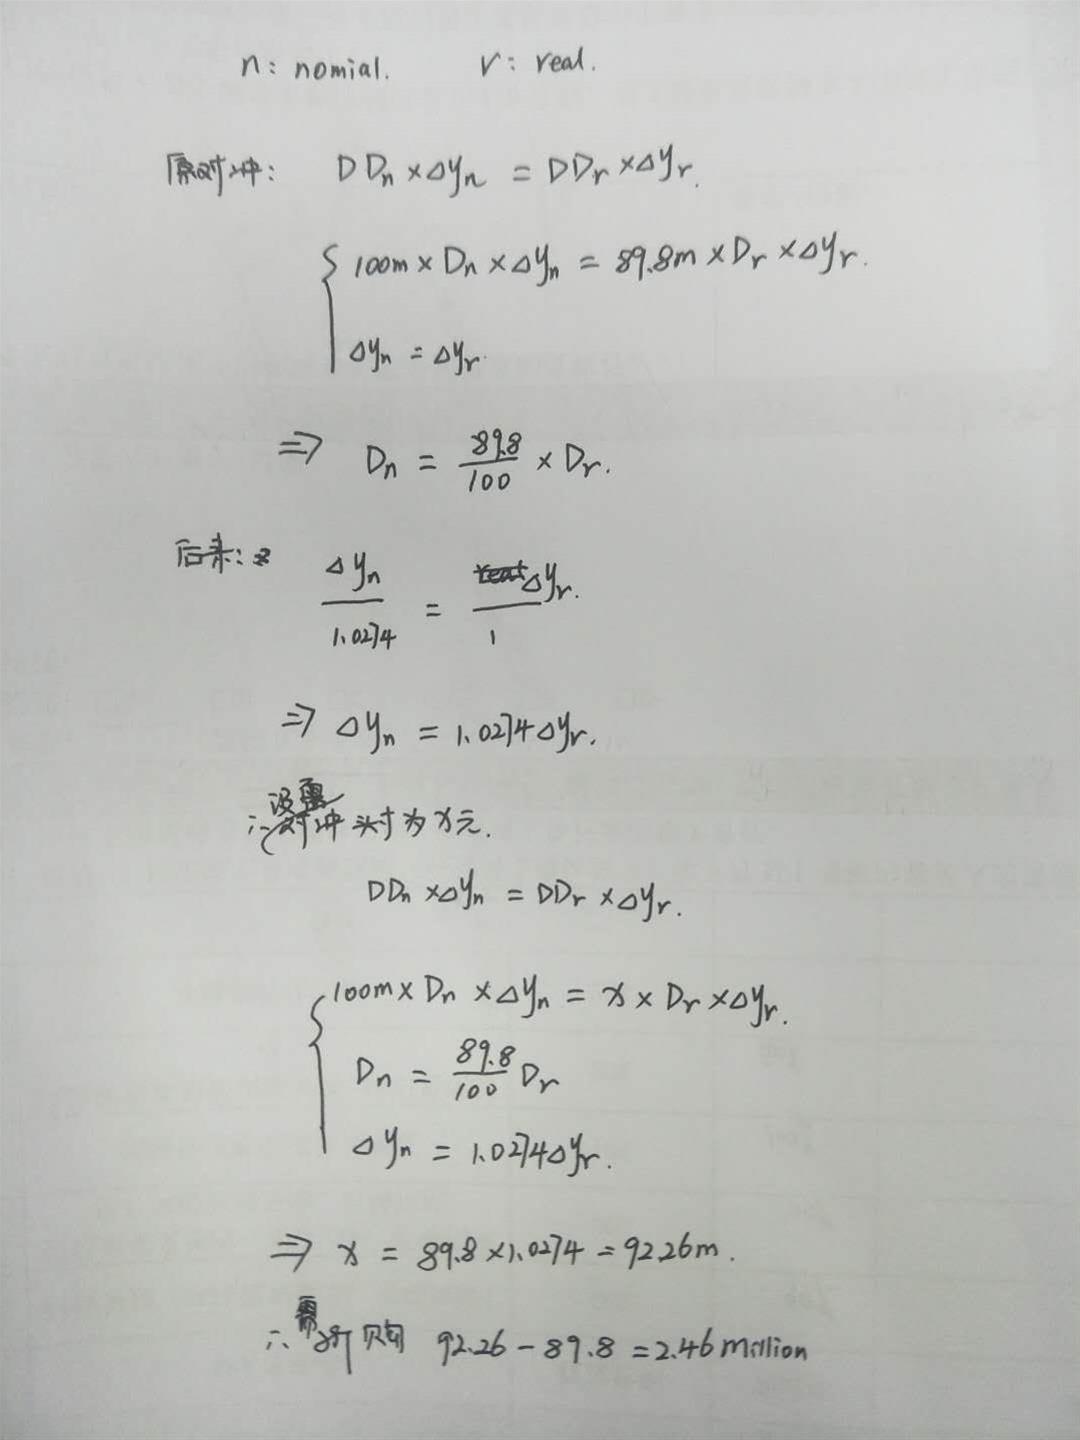 n: nomial. r: real.
原对冲: DDn×Δyn = DDr×Δyr.
100m×Dn×Δyn = 89.8m×Dr×Δyr.
Δyn = Δyr.
⇒ Dn = 89.8/100 × Dr.
后来: Δyn/1.0274 = Δyr./1
⇒ Δyn = 1.0274Δyr.
设需
∴对冲头寸为x元.
DDn×Δyn = DDr×Δyr.
100m×Dn×Δyn = x×Dr×Δyr.
Dn = 89.8/100 Dr
Δyn = 1.0274Δyr.
⇒ x = 89.8×1.0274 = 92.26m.
∴需新购 92.26-89.8 = 2.46 million